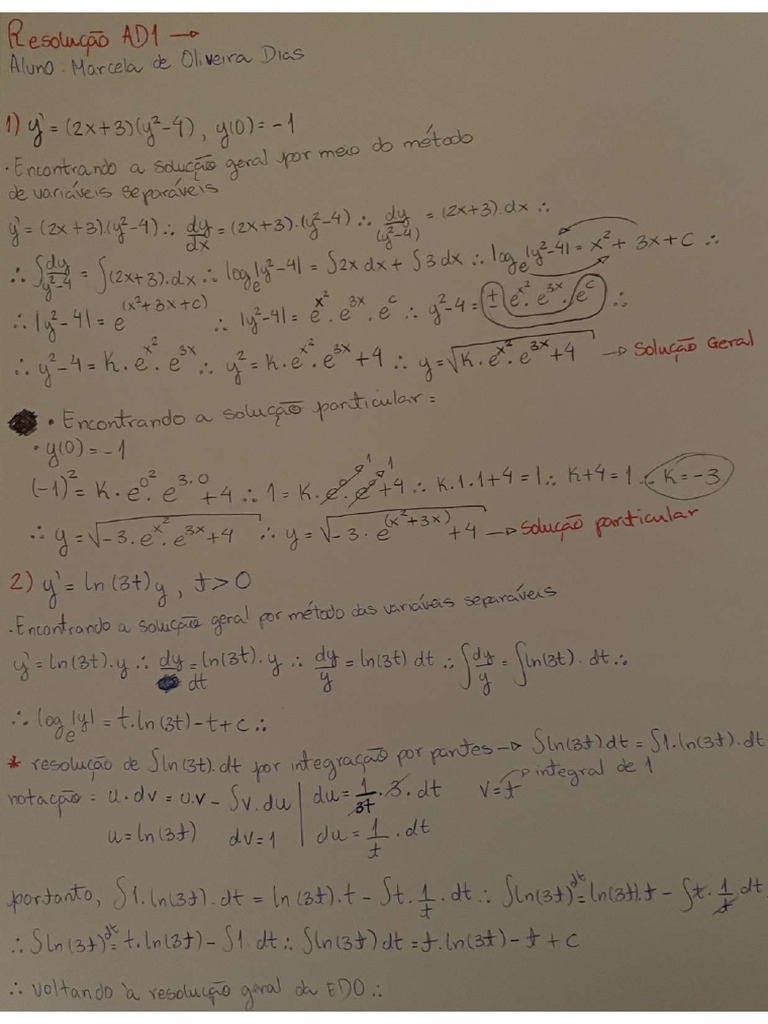 Resolução AD1 →
Aluno: Marcela de Oliveira Dias
1) y' = (2x+3)(y²-4), y(0) = -1
· Encontrando a solução geral por meio do método
de variáveis separáveis
y' = (2x+3).(y²-4) ∴ dy/dx = (2x+3).(y²-4) ∴ dy/(y²-4) = (2x+3).dx ∴
∴ ∫dy/y²-4 = ∫(2x+3).dx ∴ logₑ|y²-4| = ∫2x dx + ∫3 dx ∴ logₑ|y²-4| = x² + 3x + C ∴
∴ |y²-4| = e^(x²+3x+c) ∴ |y²-4| = e^x² . e^3x . e^c ∴ y²-4 = ± e^x² . e^3x . e^c ∴
∴ y²-4 = K . e^x² . e^3x ∴ y² = K . e^x² . e^3x + 4 ∴ y = √(K . e^x² . e^3x + 4) → Solução Geral
· Encontrando a solução particular =
· y(0) = -1
(-1)² = K . e^0² . e^3.0 + 4 ∴ 1 = K . e^0 . e^0 + 4 ∴ K.1.1+4 = 1 ∴ K+4 = 1 ∴ K = -3
∴ y = √(-3 . e^x² . e^3x + 4) ∴ y = √(-3 . e^(x²+3x) + 4) → Solução particular
2) y' = ln(3t)y, t > 0
· Encontrando a solução geral por método das variáveis separáveis
y' = ln(3t).y ∴ dy/dt = ln(3t).y ∴ dy/y = ln(3t) dt ∴ ∫dy/y = ∫ln(3t).dt ∴
∴ logₑ|y| = t.ln(3t) - t + c ∴
* resolução de ∫ln(3t).dt por integração por partes → ∫ln(3t).dt = ∫1.ln(3t).dt
notação = u.dv = u.v - ∫v.du | du = 1/3t . 3 . dt v = t → integral de 1
u = ln(3t) dv = 1 | du = 1/t . dt
portanto, ∫1.ln(3t).dt = ln(3t).t - ∫t.1/t.dt ∴ ∫ln(3t)dt = ln(3t).t - ∫t.1/t dt
∴ ∫ln(3t)dt = t.ln(3t) - ∫1.dt ∴ ∫ln(3t)dt = t.ln(3t) - t + c
∴ voltando à resolução geral da EDO ∴